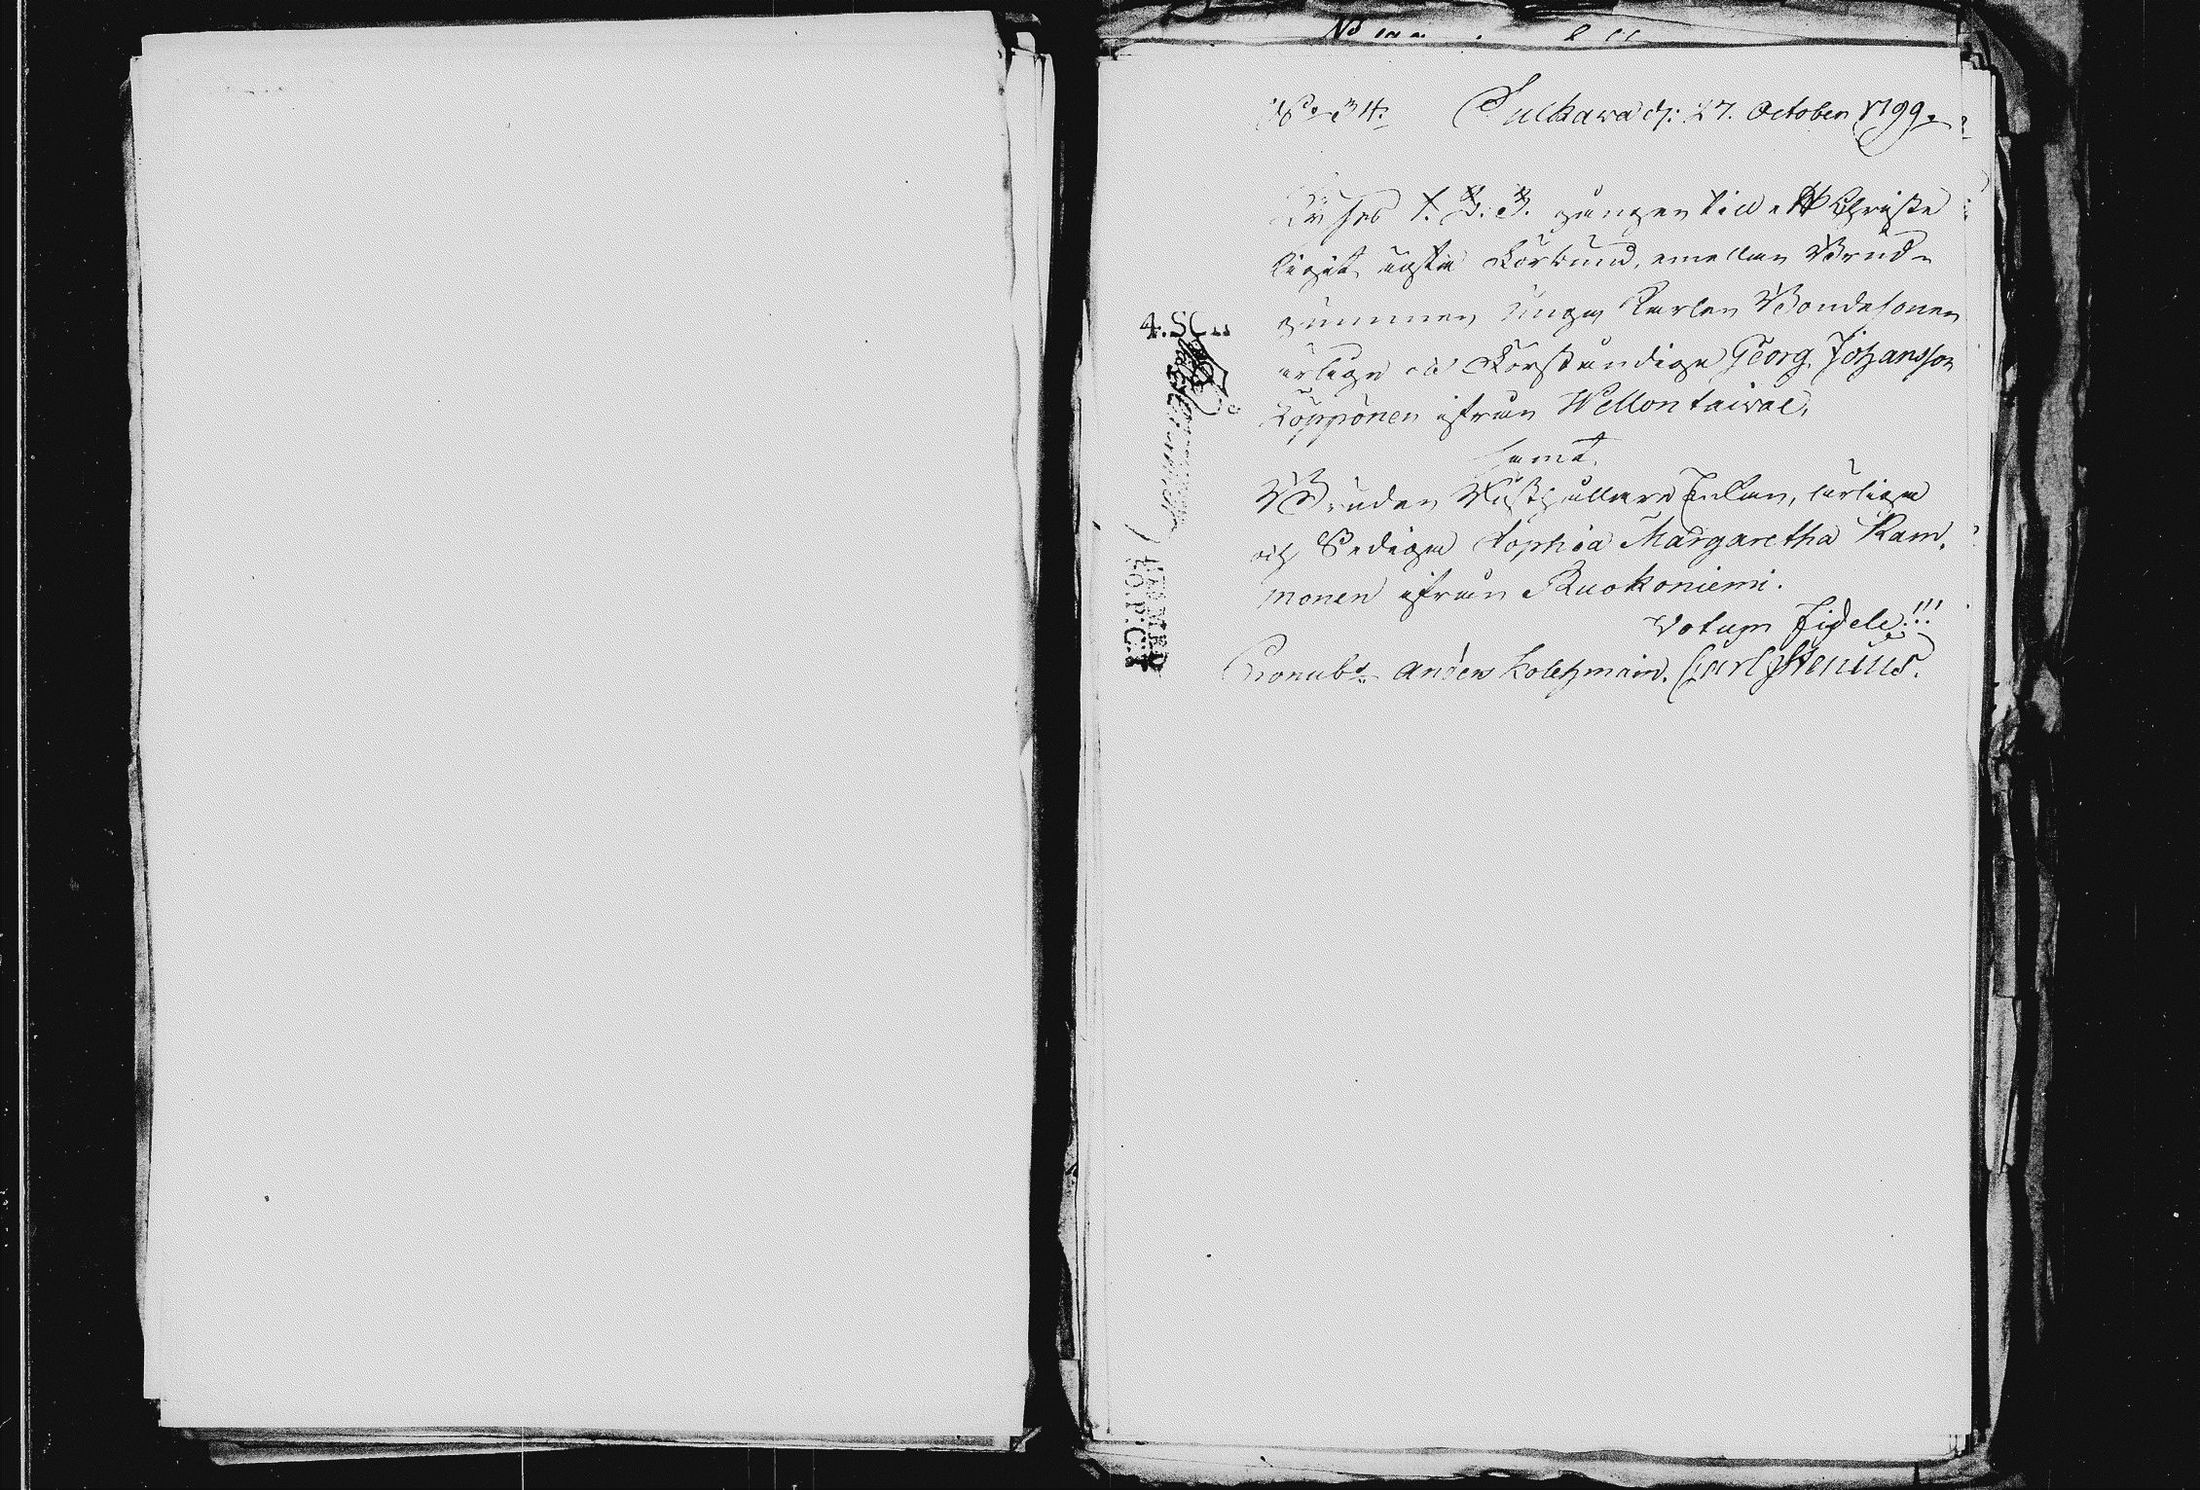 No 34. Sulkawa d: 27. October 1799.
Lyses 1. 2. 3. gången till et Christe
ligit ägta Förbund, emellan Brud-
gummen Unga Karlen Bondesonen
ärlige och Förståndige Georg Johansson
Köppönen ifrån Wellontaiwal,
samt
Bruden Rusthållare Enkan, ärliga
och Sediga Sophia Margaretha Ram-
monen ifrån Ruokoniemi.
Votum fidele!!!
Pronub: Anders Kolehmain. Carl Stenius.
4. SCH